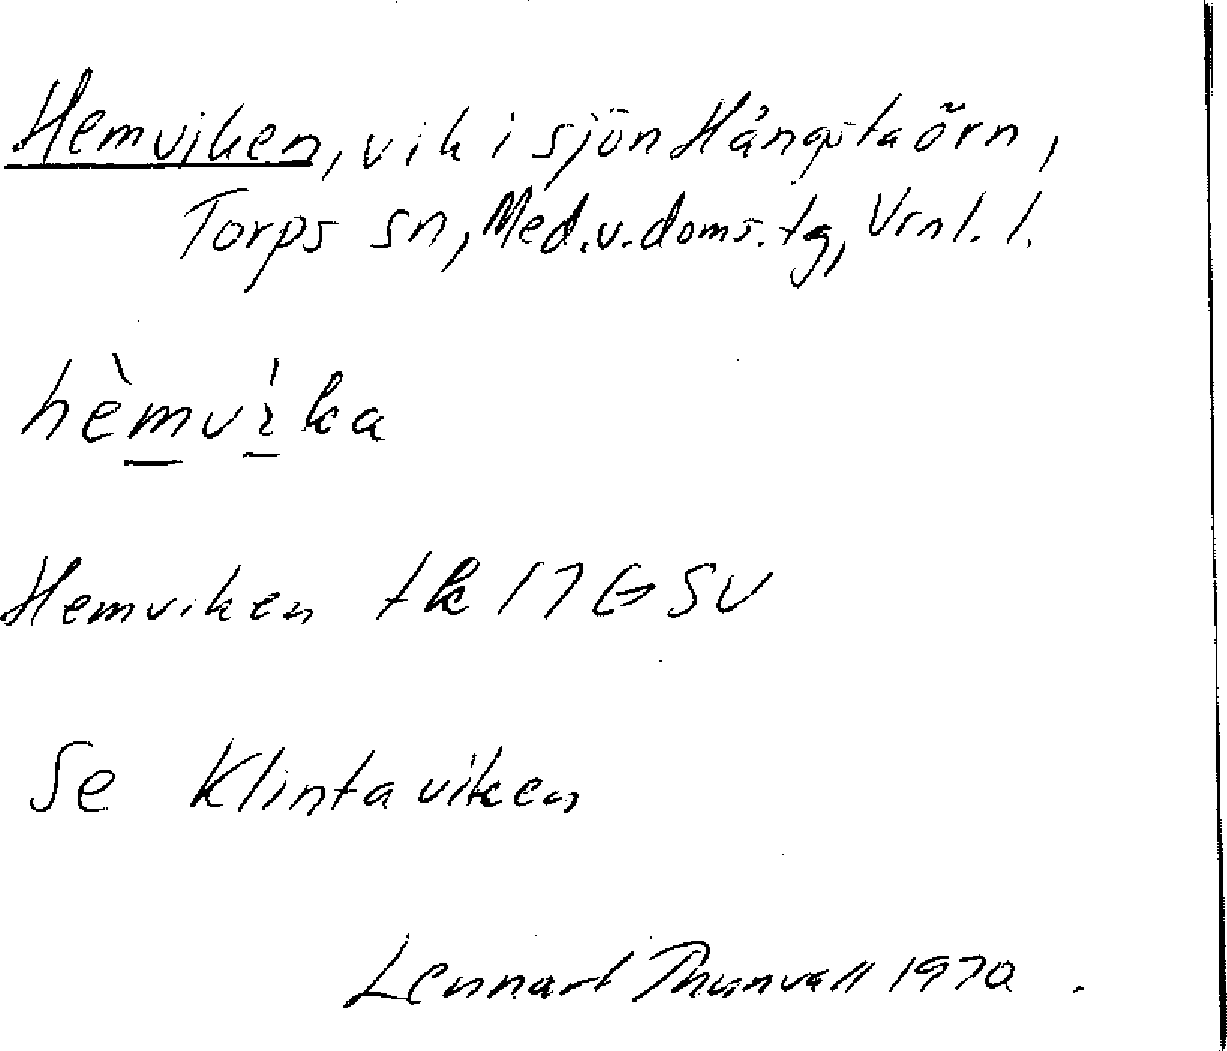 Hemviken, vik i sjön Hångstaörn,
Torps sn, Med.v.doms.tg, Vrnl. l.
hèmvìka
Hemviken tk 17G SV
Se Klintaviken
Lennart Thunvall 1970.